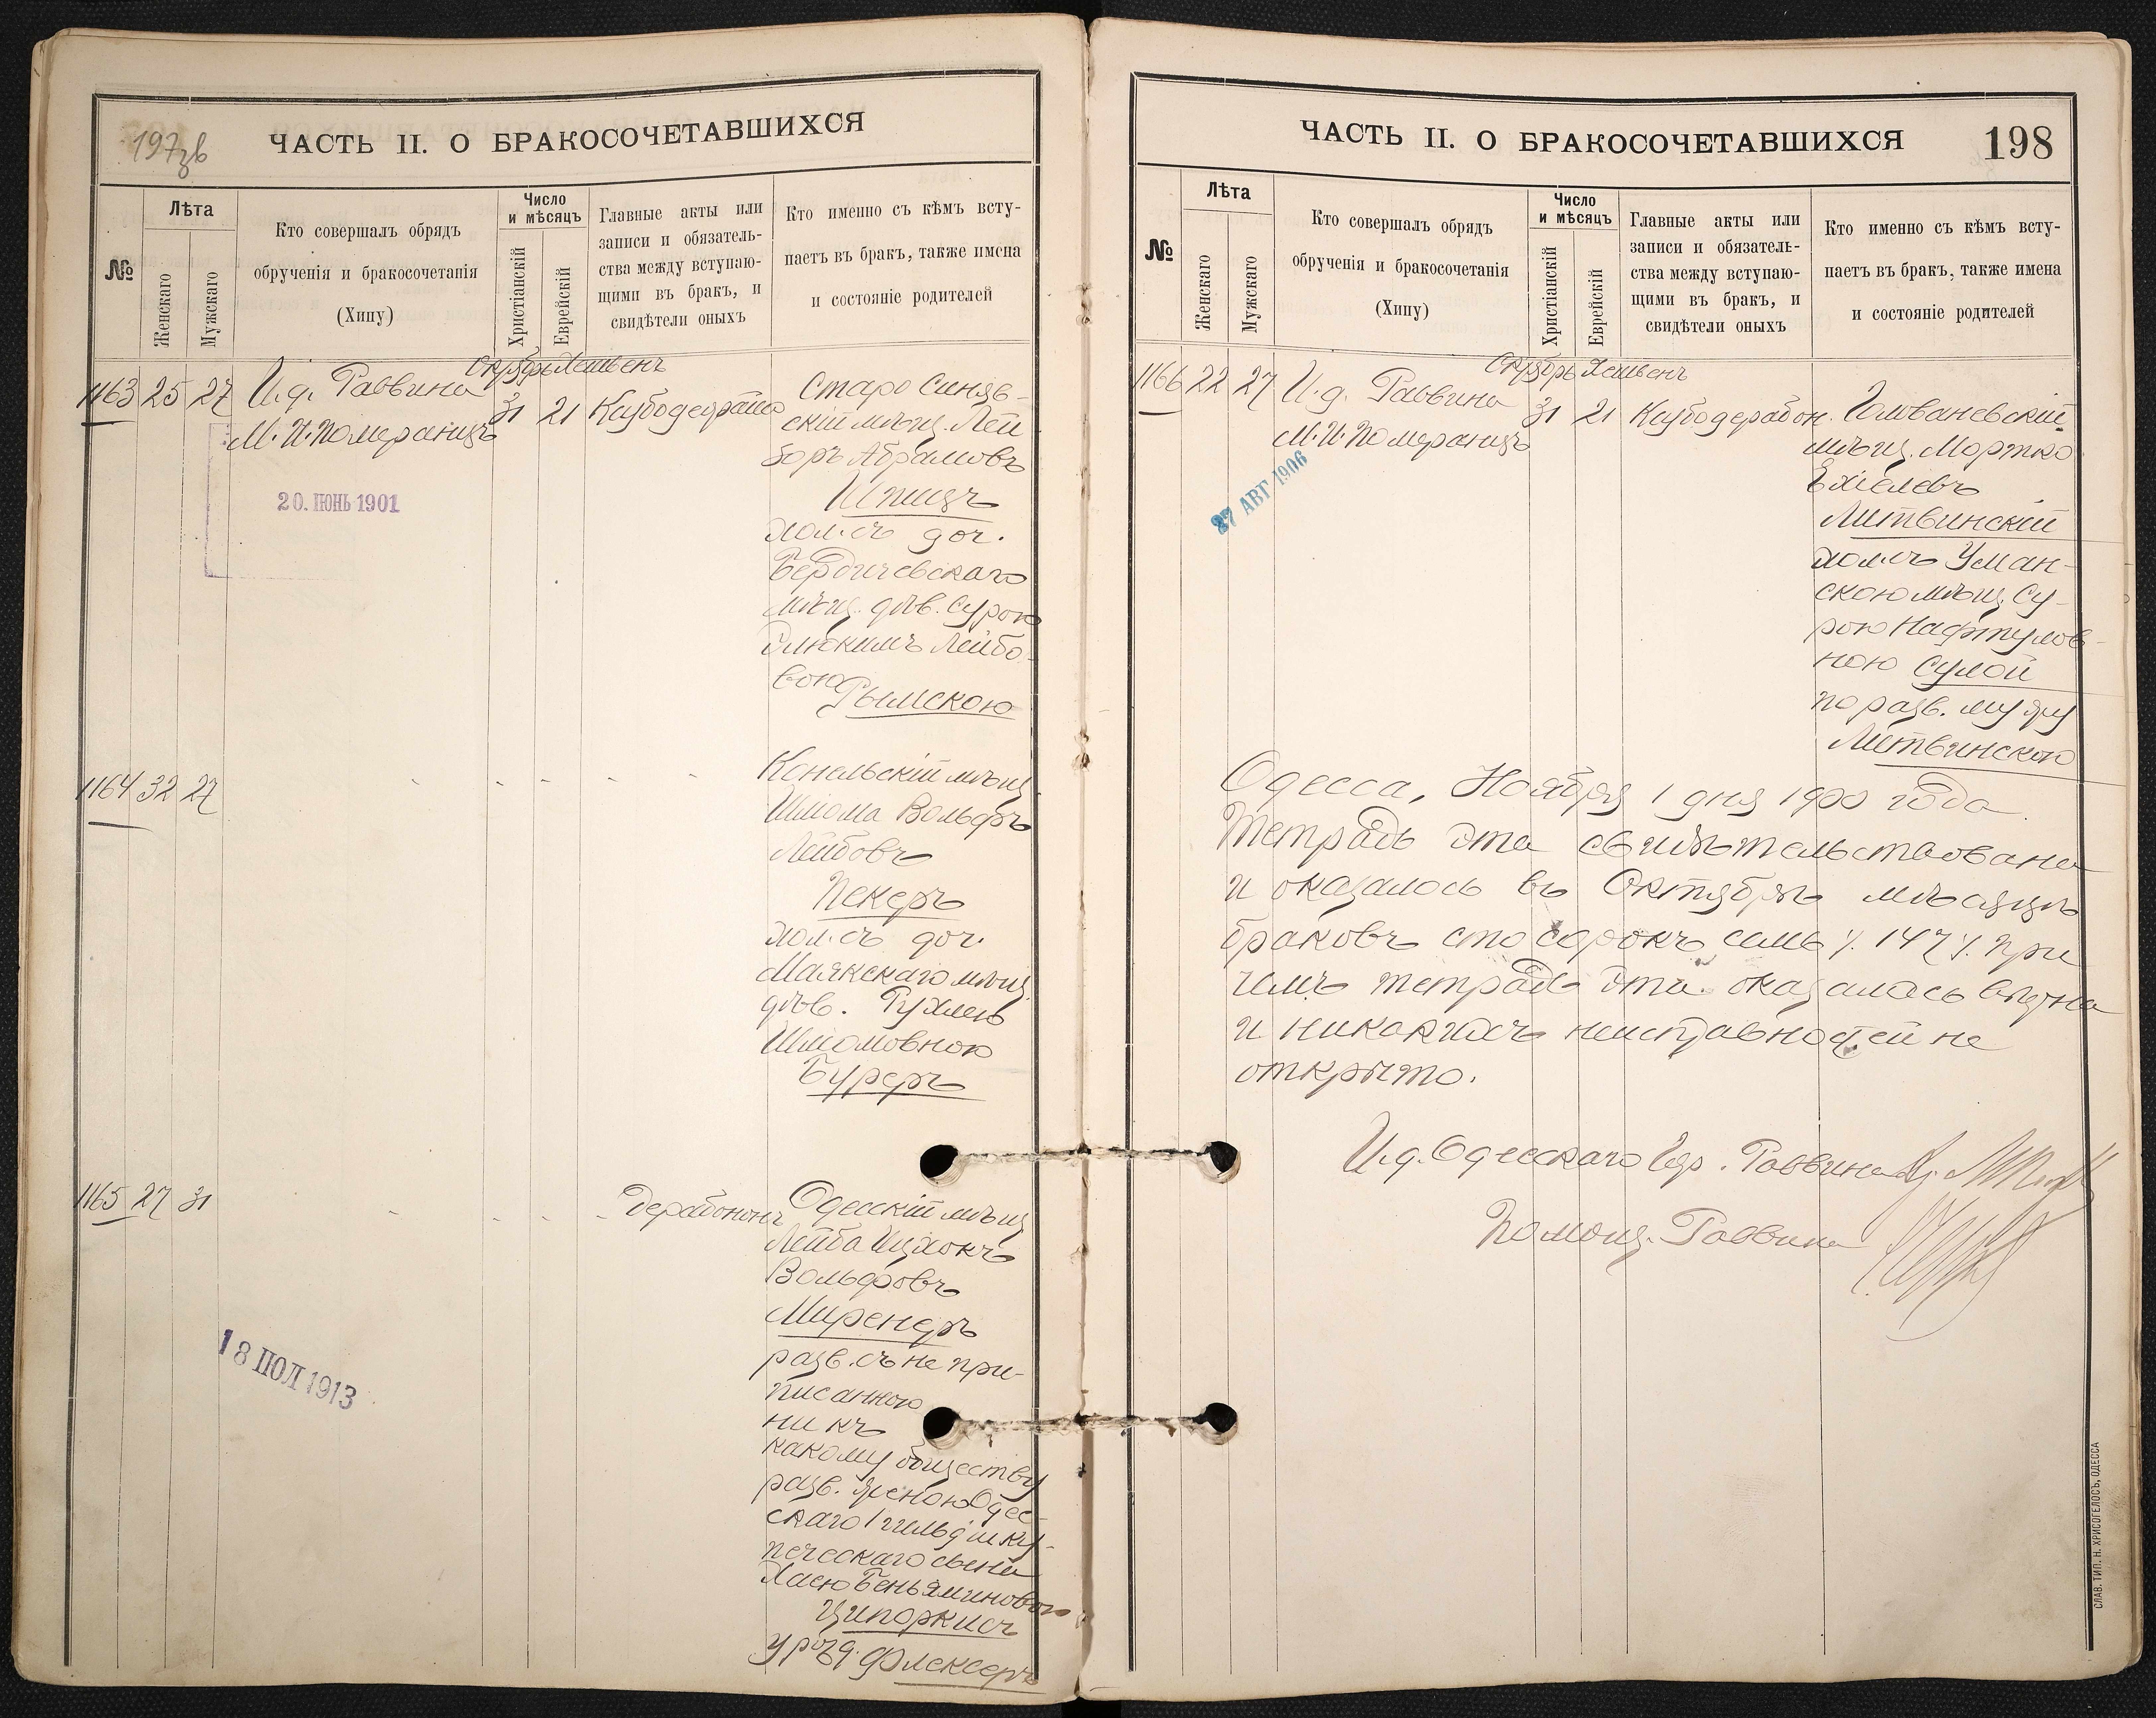 197зв
ЧАСТЬ II. О БРАКОСОЧЕТАВШИХСЯ
№
Лѣта
Женскаго
Мужскаго
Кто совершалъ обрядъ
обрученія и бракосочетанія
(Хипу)
Число
и мѣсяцъ
Христіанскій
Еврейскій
Главные акты или
записи и обязатель-
ства между вступаю-
щими въ бракъ, и
свидѣтели оныхъ
Кто именно съ кѣмъ всту-
паетъ въ бракъ, также имена
и состояніе родителей
Октябрь Хешвенъ
1163 25 27 И.д. Раввина
М.И. Померанцъ
31 21
Старо Синяв-
скій мѣщ. Лей
боръ Абрамовъ
Шпицъ
хол. съ доч.
Бердичевскаго
мѣщ. дѣв. Сурою
Лейбо-
вою Рымскою
20. ІЮНЬ 1901
1164 32 27
Конельскій мѣщ.
Шлома Вольфъ
Лейбовъ
Пекеръ
хол. съ доч.
Маякскаго мѣщ.
дѣв. Рухлею
Шломовною
Буреръ
1165 27 31
Дерабононъ
Одесскій мѣщ
Лейба Ицхокъ
Вольфовъ
Миренеръ
разв. съ не при-
писанною
ни къ
какому обществу
разв. женою Одес-
скаго 1 гильдіи ку-
печескаго сына
Хаею Беньяминовою
Ципоркисъ
урожд. Флексеръ
18 ІЮЛ 1913
ЧАСТЬ II. О БРАКОСОЧЕТАВШИХСЯ
198
№
Лѣта
Женскаго
Мужскаго
Кто совершалъ обрядъ
обрученія и бракосочетанія
(Хипу)
Число
и мѣсяцъ
Христіанскій
Еврейскій
Главные акты или
записи и обязатель-
ства между вступаю-
щими въ бракъ, и
свидѣтели оныхъ
Кто именно съ кѣмъ всту-
паетъ въ бракъ, также имена
и состояніе родителей
Октябрь Хешвенъ
1166 22 27 И.д. Раввина
М.И. Померанцъ
31 21 Кусбодерабон.
Голованевскій
мѣщ. Мортко
Ехелевъ
Литвинскій
хол. съ Уман-
скою мѣщ. Су-
рою Нафтулов-
ною Сулой
по разв. мужу
Литвинскою
27 АВГ 1906
Одесса, Ноября 1 дня 1900 года.
Тетрадь эта свидѣтельствована
и оказалось въ Октябрѣ мѣсяцѣ
браковъ сто сорокъ семь /. 147 /. при
чемъ тетрадь эта оказалась вѣрна
и никакихъ неисправностей не
открыто.
И.д. Одесскаго Гор. Раввина
Помощ. Раввина
СЛАВ. ТИП. Н. ХРИСОГЕЛОСЪ, ОДЕССА